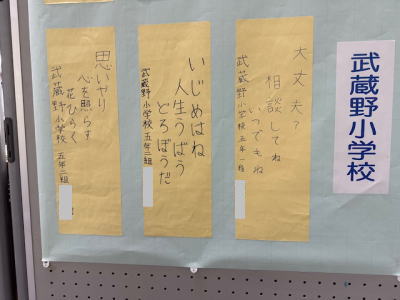 武蔵野小学校
大丈夫?
相談してね
いつでもね
武蔵野小学校五年一組
いじめはね
人生うばう
どろぼうだ
武蔵野小学校五年二組
思いやり
心を照らす
花ひらく
武蔵野小学校五年二組